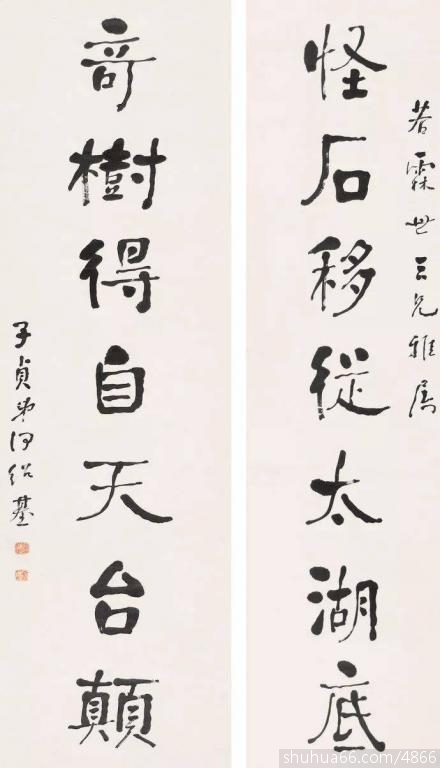 若霖世三兄雅属
怪石移從太湖底
奇樹得自天台顛
子貞弟何紹基
shuhua66.com/4866